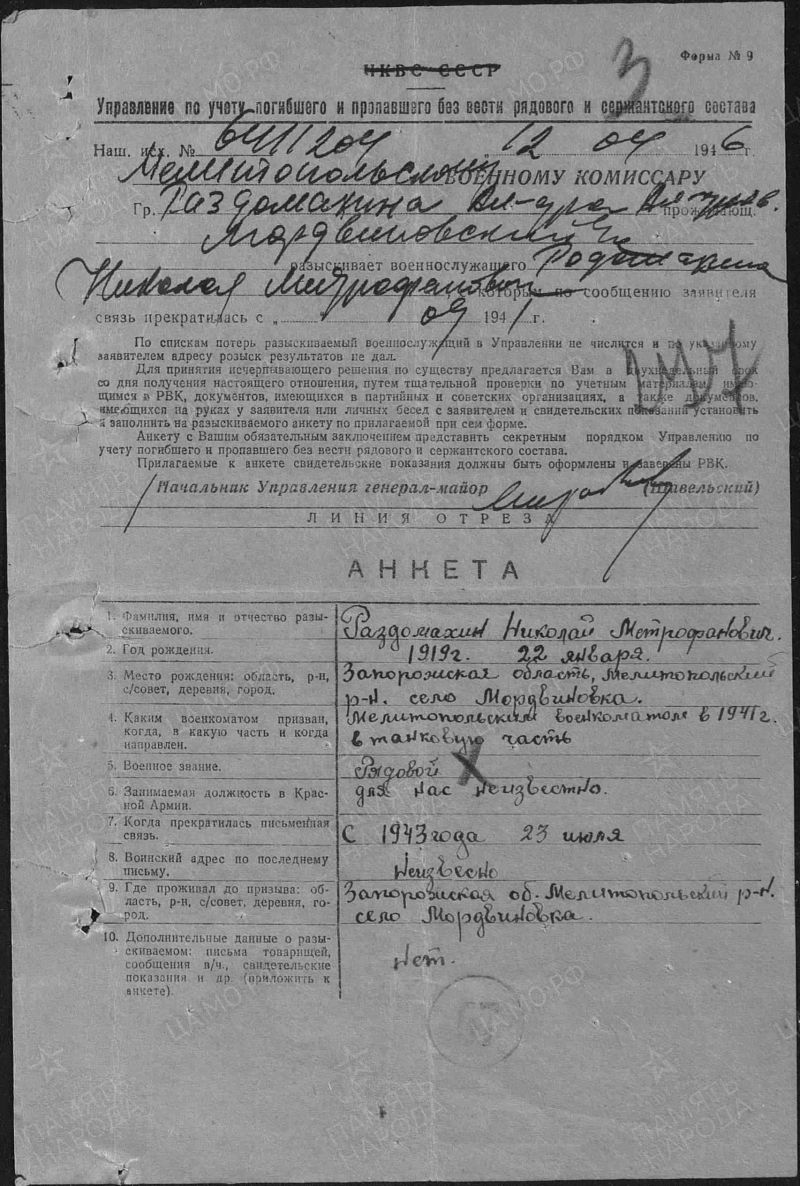 3
Форма № 9
НКВС СССР
Управление по учету погибшего и пропавшего без вести рядового и сержантского состава
Наш. исх. № 12 04 1946 г.
Мелитопольскому ВОЕННОМУ КОМИССАРУ
Гр. Раздомахина прожинающ.
Мордвиновский
разыскивает военнослужащего
Николая Митрофанович которым по сообщению заявителя
связь прекратилась с „ 09 1941 г.
По спискам потерь разыскиваемый военнослужащий в Управлении не числится и по указанному
заявителем адресу розыск результатов не дал.
Для принятия исчерпывающего решения по существу предлагается Вам в двухнедельный срок
со дня получения настоящего отношения, путем тщательной проверки по учетным материалам, имею-
щимся в РВК, документов, имеющихся в партийных и советских организациях, а также документов,
имеющихся на руках у заявителя или личных бесед с заявителем и свидетельских показаний установить
и заполнить на разыскиваемого анкету по прилагаемой при сем форме.
Анкету с Вашим обязательным заключением представить секретным порядком Управлению по
учету погибшего и пропавшего без вести рядового и сержантского состава.
Прилагаемые к анкете свидетельские показания должны быть оформлены и заверены РВК.
Начальник Управления генерал-майор (Шавельский)
ЛИНИЯ ОТРЕЗА
АНКЕТА
1. Фамилия, имя и отчество разы-
скиваемого.
Раздомахин Николай Метрофанович.
2. Год рождения.
1919г. 22 января.
3. Место рождения: область, р-н,
с/совет, деревня, город.
Запорожская область, Мелитопольский
р-н. село Мордвиновка.
4. Каким военкоматом призван,
когда, в какую часть и когда
направлен.
Мелитопольским военкоматом в 1941 г.
в танковую часть
5. Военное звание.
Рядовой
6. Занимаемая должность в Крас-
ной Армии.
для нас неизвестно.
7. Когда прекратилась письменная
связь.
С 1943 года 23 июля
8. Воинский адрес по последнему
письму.
Неизвесно
9. Где проживал до призыва: об-
ласть, р-н, с/совет, деревня, го-
род.
Запорожская об. Мелитопольский р-н.
село Мордвиновка.
10. Дополнительные данные о разы-
скиваемом: письма товарищей,
сообщения в/ч., свидетельские
показания и др. (приложить к
анкете).
Нет.
ЦАМО.РФ
ПАМЯТЬ
НАРОДА